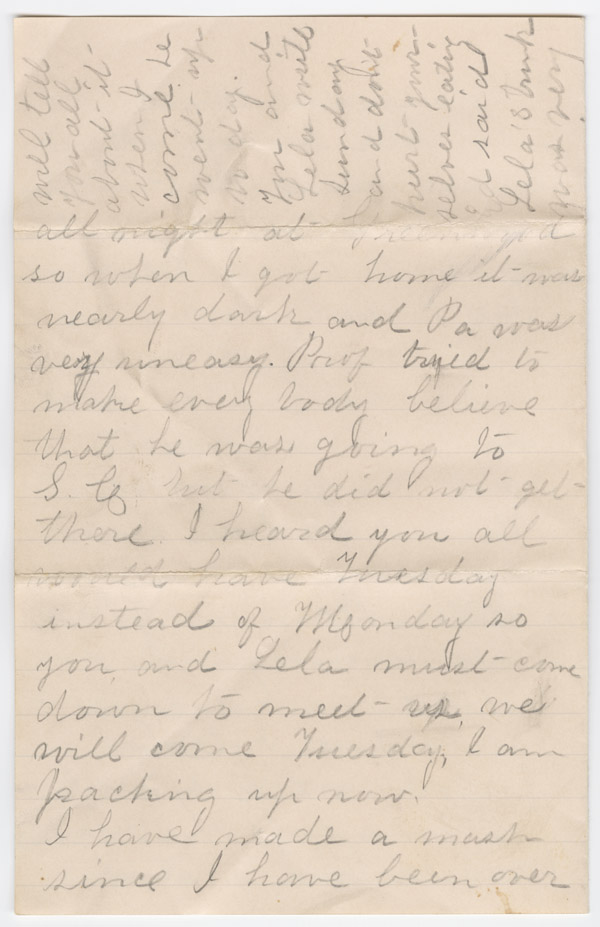 all night at
so when I got home it was
nearly dark and Pa was
very uneasy. Prof tryed to
make every body believe
that he was going to
S. C. but he did not get
there. I heard you all
would have Tuesday
instead of Monday so
you, and Lela must come
down to meet us, we
will come Tuesday, I am
packing up now.
I have made a mash
since I have been over
will tell
you all
about it
when I
come
went up
to day.
You and
Lela write
Sunday
and don't
hurt your-
selves eating
said
Lela's trunk
was very